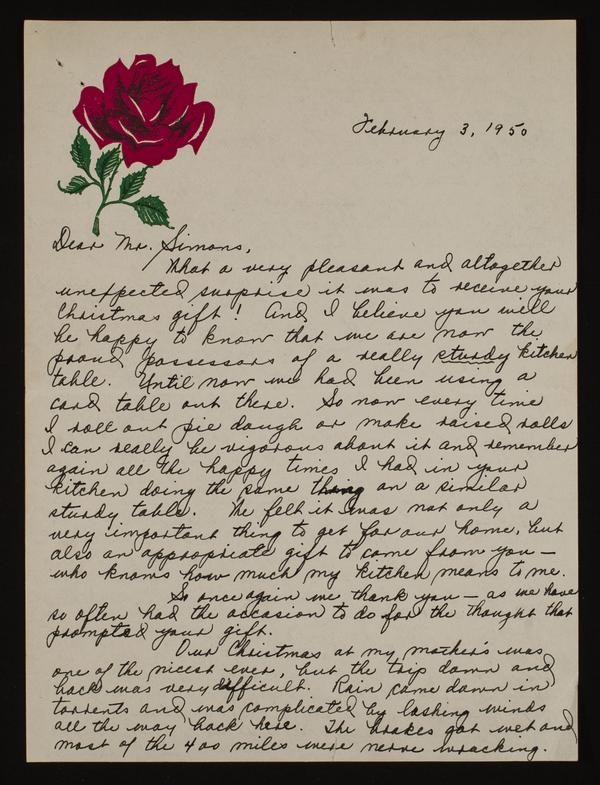 February 3, 1950
Dear Mr. Simons,
What a very pleasant and altogether
unexpected surprise it was to receive your
Christmas gift! And I believe you will
be happy to know that we are now the
proud possessors of a really sturdy kitchen
table. Until now we had been using a
card table out there. So now every time
I roll out pie dough or make raised rolls
I can really be vigorous about it and remember
again all the happy times I had in your
kitchen doing the same thing on a similar
sturdy table. We felt it was not only a
very important thing to get for our home, but
also an appropriate gift to come from you —
who knows how much my kitchen means to me.
So once again we thank you — as we have
so often had the occasion to do for the thought that
prompted your gift.
Our Christmas at my mother's was
one of the nicest ever, but the trip down and
back was very difficult. Rain came down in
torrents and was complicated by lashing winds
all the way back here. The brakes got wet and
most of the 400 miles were nerve wracking.